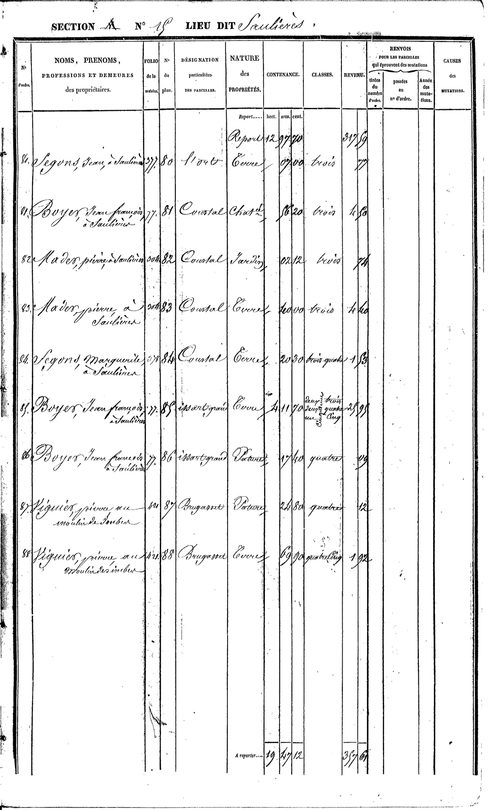 SECTION A N° 15 LIEU DIT Saulières.
N° d'ordre.
NOMS, PRENOMS,
PROFESSIONS ET DEMEURES
des propriétaires.
FOLIO de la matrice.
N° du plan.
DÉSIGNATION
particulière
DES PARCELLES.
NATURE
des
PROPRIÉTÉS.
CONTENANCE.
CLASSES.
REVENU.
RENVOIS
POUR LES PARCELLES
qui éprouvent des mutations
CAUSES
des
MUTATIONS.
Report..... hect. ares. cent.
Report 12 97 70 317 59
80. Segons, Jean, à Saulières 377. 80 l'ort Terre 07 00 trois 77
81. Boyer, Jean françois, 77. 81 Coustal Chat. 56 20 trois 4 50
à Saulières
82. Mader, pierre, à Saulières 82 Coustal Jardin 02 12 trois 74
83. Mader, pierre à 83 Coustal Terre 40 00 trois 4 40
Saulières
84. Segons, Marguerite, 378 84 Coustal Terre 20 30 trois quatre 1 53
à Saulières
85. Boyer, Jean françois 77. 85 issart grand Terre 4 11 70 25 95
à Saulières
86. Boyer, Jean françois 77. 86 issart grand Pature 17 40 quatre 09
à Saulières
87. Viguier, pierre au 87 Brugasset Pature 24 80 quatre 12
moulin de
88. Viguier, pierre au 88 Brugasset Terre 69 90 quatre cinq 1 92
moulin de
A reporter..... 19 47 12 357 61